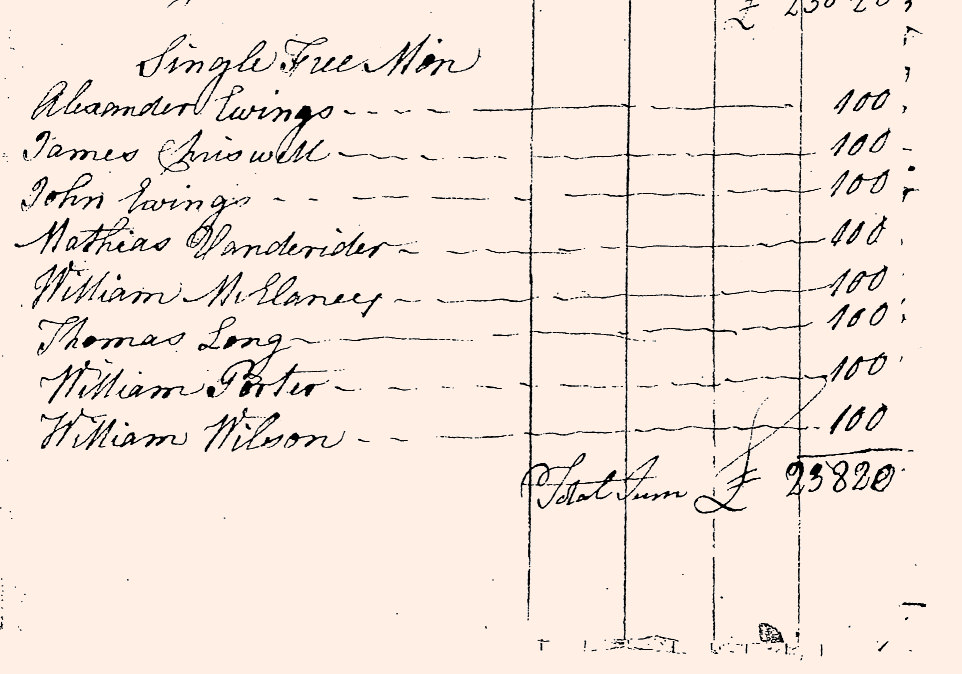 £ 23020
Single Free Men
Alexander Ewings 100
James Criswell 100
John Ewings 100
Mathias Vanderider 100
William McElaney 100
Thomas Long 100
William Porter 100
William Wilson 100
Total Sum £ 23820